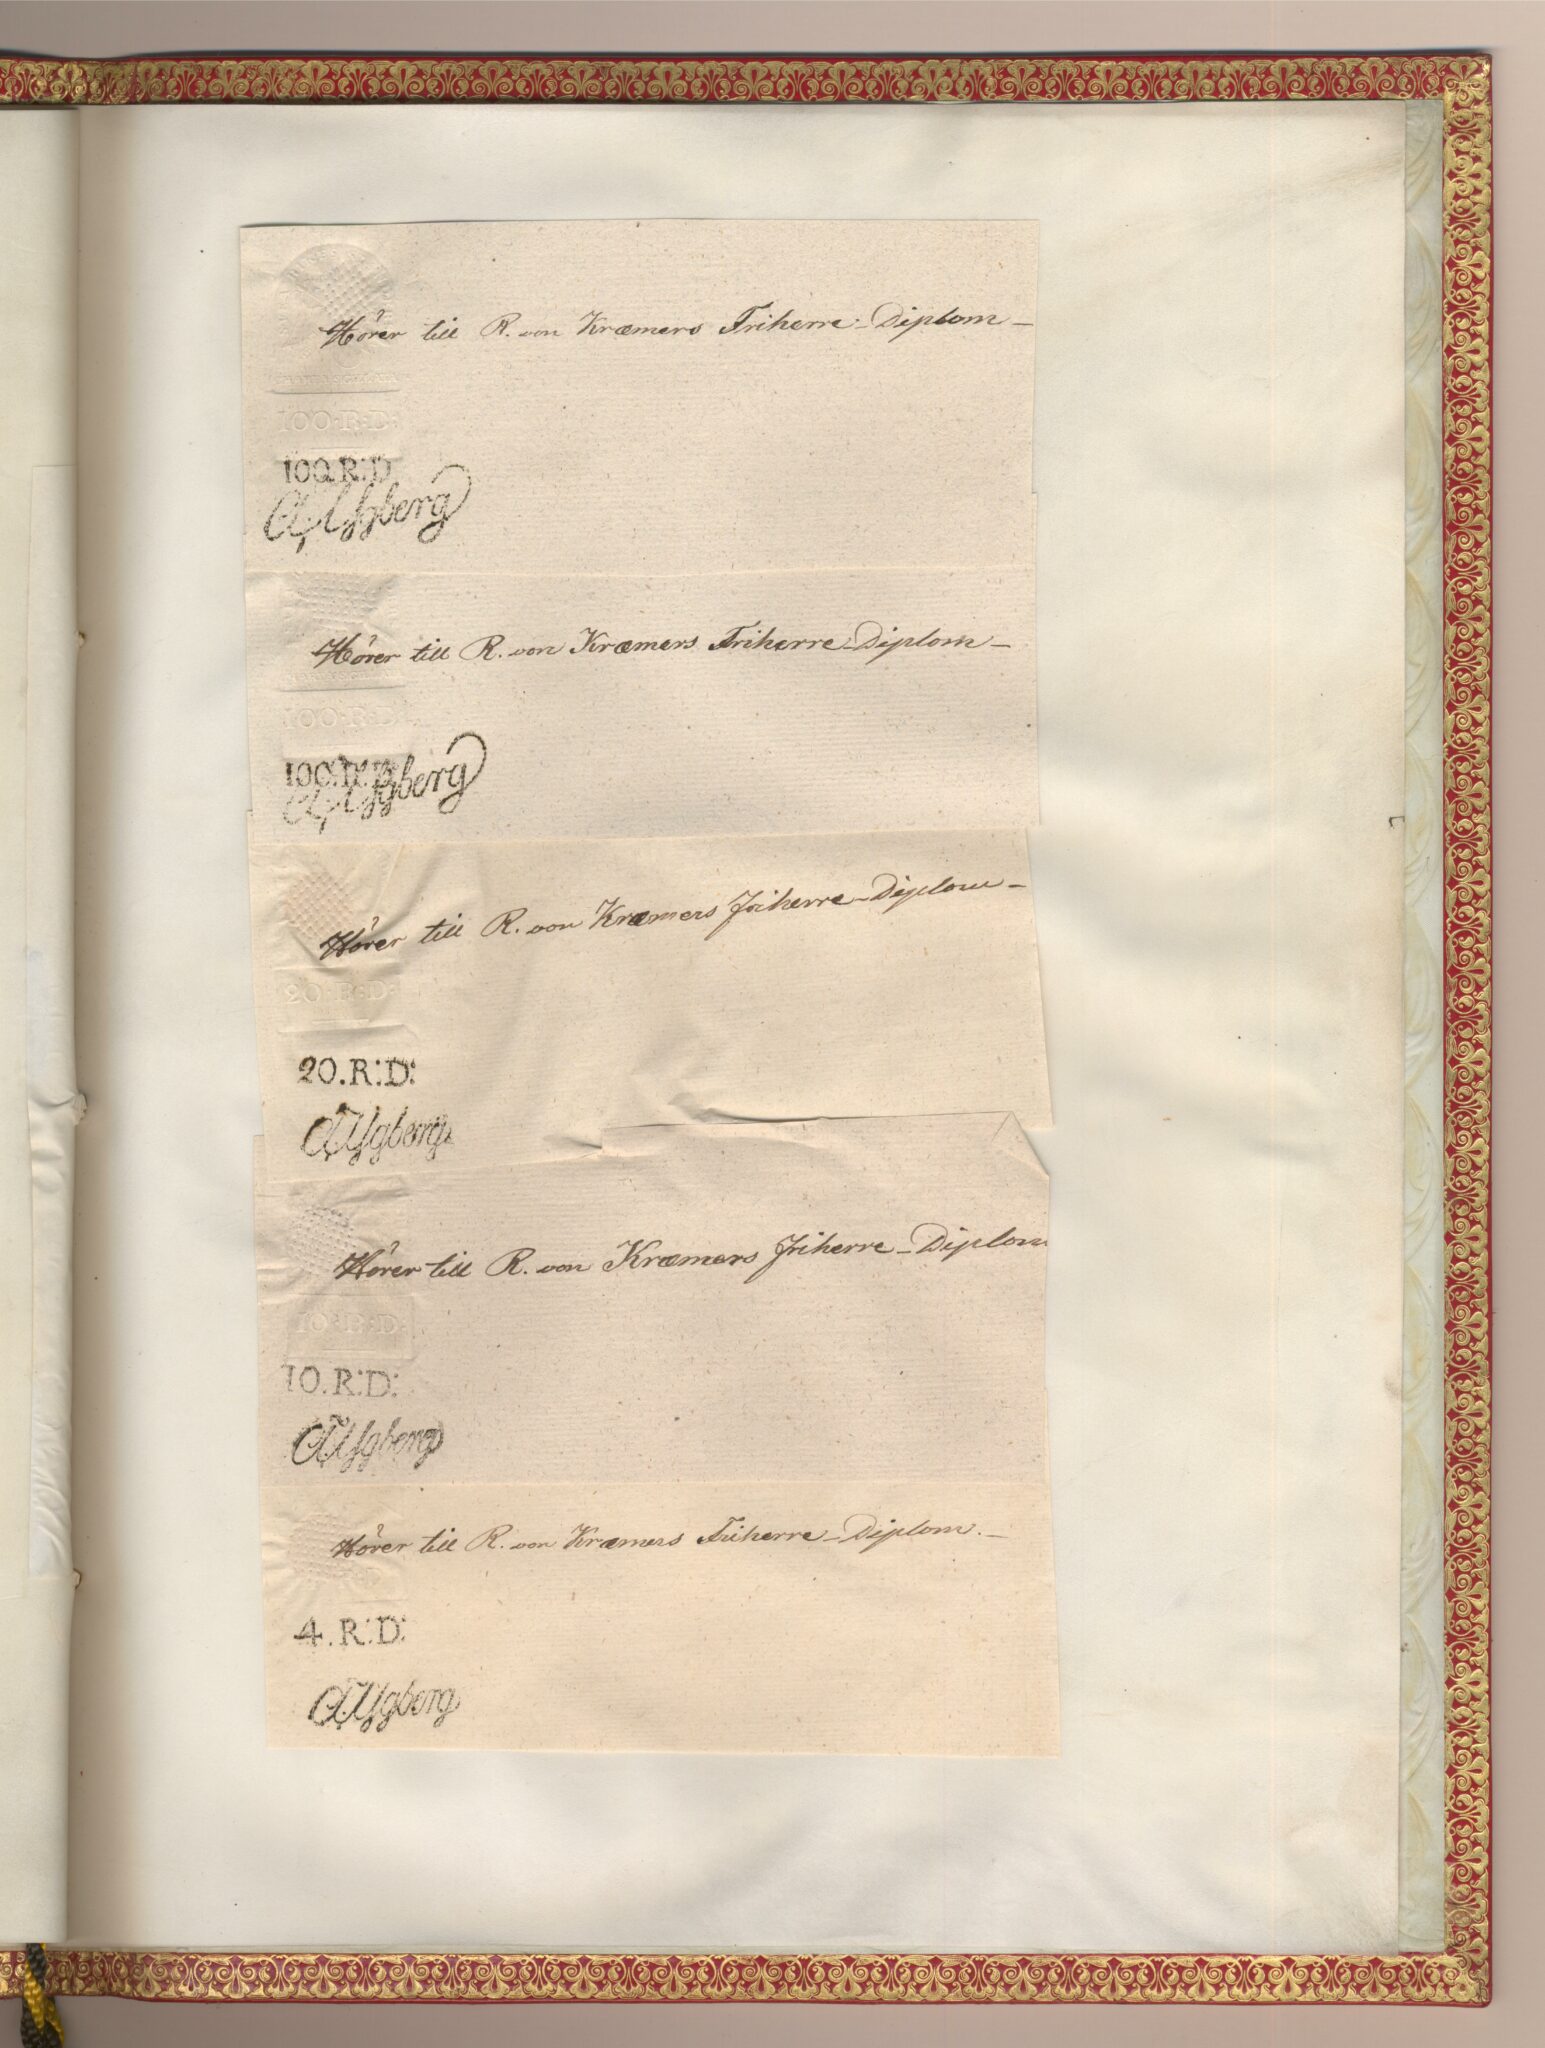 Hörer till R. von Kræmers Friherre-Diplom-
100.R:D:
100.R:D
Hörer till R. von Kræmers Friherre-Diplom-
100.R:D:
100.R:D:
Hörer till R. von Kræmers Friherre-Diplom-
20.R:D:
20.R:D:
Hörer till R. von Kræmers Friherre-Diplom
10.R:D:
10.R:D:
Hörer till R. von Kræmers Friherre-Diplom.-
4.R:D: